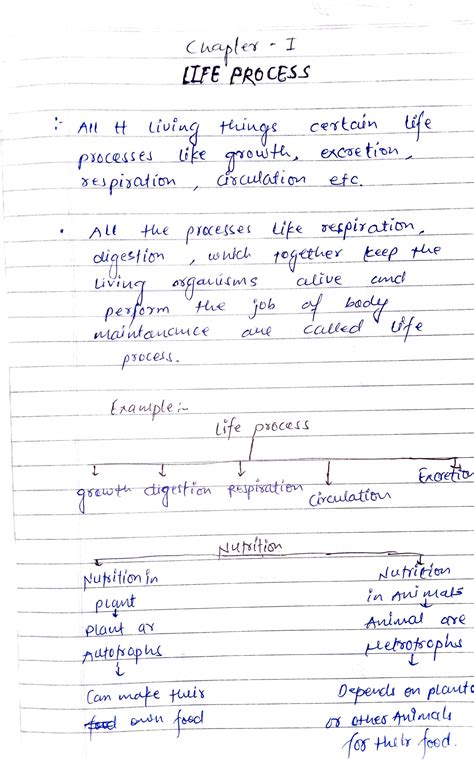 Chapter - I
LIFE PROCESS
:- All H living things certain life
processes like growth, excretion,
respiration, circulation etc.
• All the processes like respiration,
digestion, which together keep the
living organisms alive and
perform the job of body
maintanance are called life
process.
Example:-
Life process
growth digestion respiration circulation Excretion
Nutrition
Nutrition in plant
↓
plant ar Autotrophs
↓
Can make their
food own food
Nutrition in Animals
↓
Animal are Hetrotrophs
↓
Depends on plants
or other Animals
for their food.